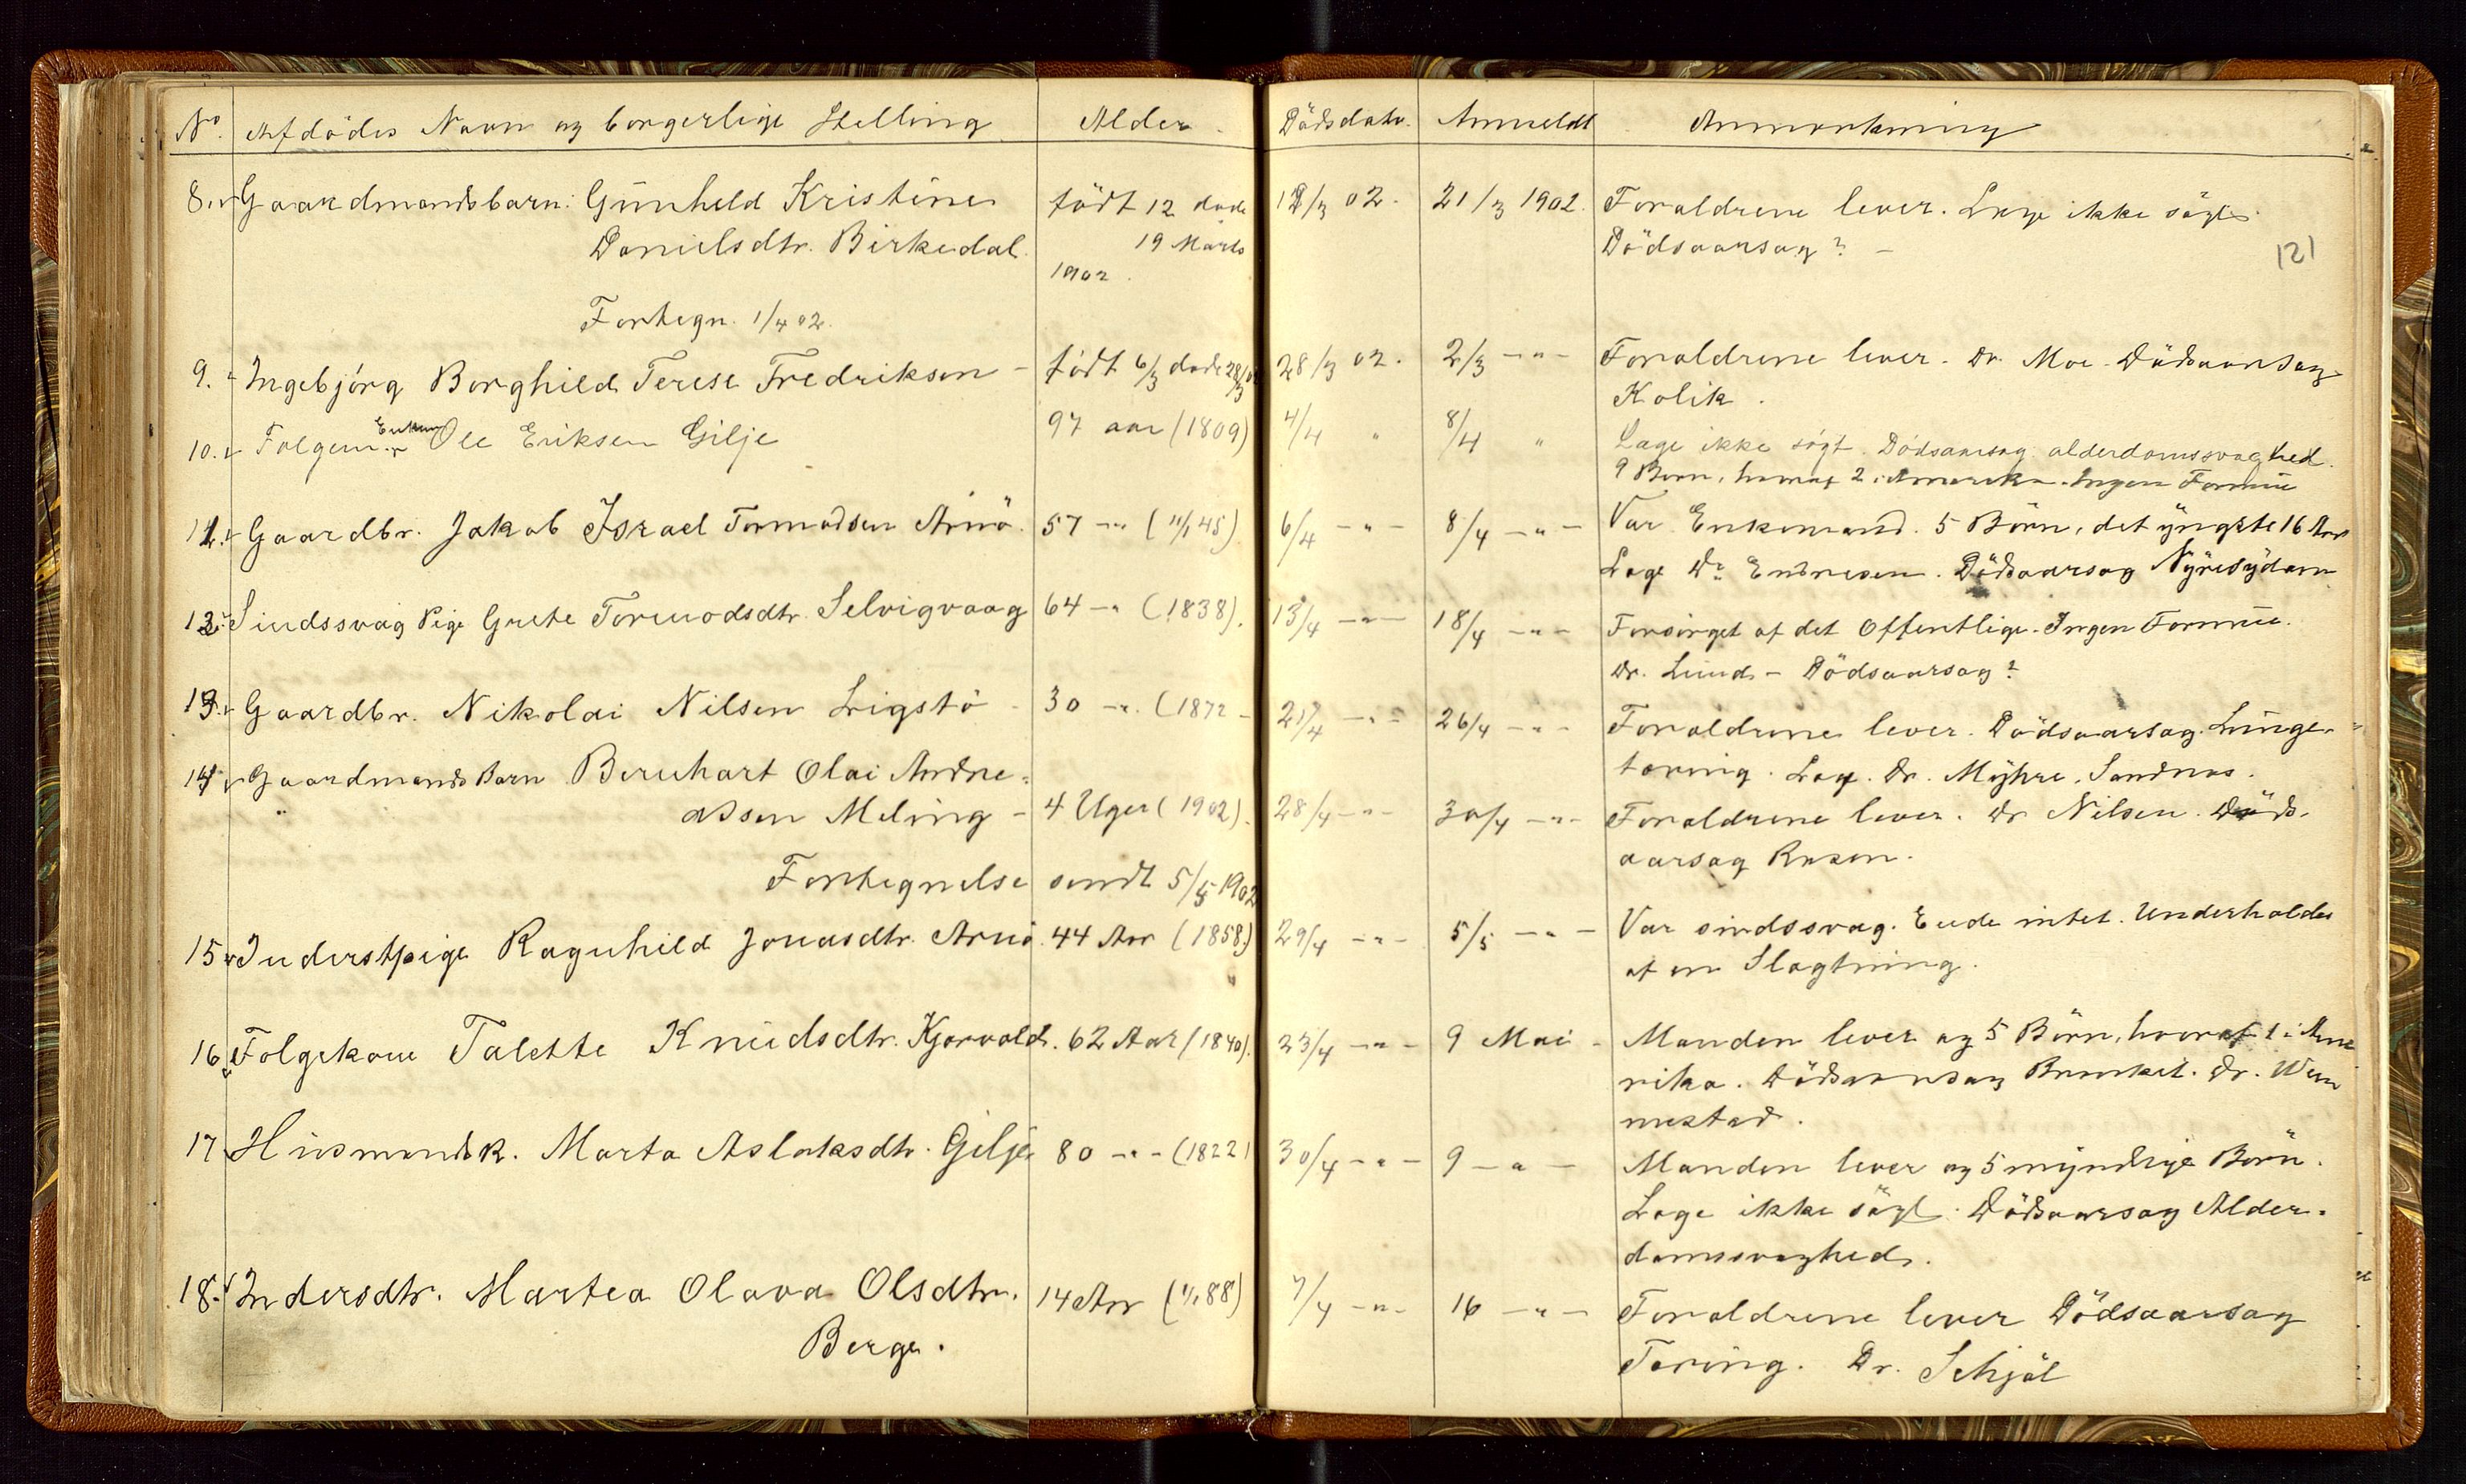 No. Afdødes Navn og borgerlige Stilling Alder. Dödsdato. Anmeldt Anmærkning
8. Gaardmandsbarn: Gunhild Kristine födt 12 döde 12/3 02. 21/3 1902. Forældrene lever. Læge ikke sögt.
Danielsdtr. Birkedal. 19 Marts Dödsaarsag? -
1902. 121
Fortegn. 1/4 02.
9. Ingebjörg Borghild Terese Fredriksen - födt 6/3 döde 28/3 28/3 02. 2/3 -"- Forældrene lever. Dr. Moe. Dödsaarsag
Kolik.
10. Folgem. Enkem. Ole Eriksen Gilje 97 aar (1809) 4/4 " 8/4 " Læge ikke søgt. Dödsaarsag alderdomssvaghed.
9 Børn, hvoraf 2 i Amerika. Ingen Formue
11. Gaardbr. Jakob Israel Tormodsen Arnö. 57 -"- (11/1 45). 6/4 -"- 8/4 -"- Var Enkemand. 5 Börn, det yngste 16 Aar
Læge Dr. Endresen. Dödsaarsag Nyresydom
12. Sindssvag Pige Grete Tormodsdtr. Selvigvaag 64 -"- (1838). 13/4 -"- 18/4 -"- Forsörget af det Offentlige. Ingen Formue.
Dr. Lund - Dödsaarsag?
13. Gaardbr. Nikolai Nilsen Ligstö - 30 -"- (1872 - 21/4 -"- 26/4 -"- Forældrene lever. Dödsaarsag. Lunge-
tæring. Læge. Dr. Myhre, Sandnes.
14. GaardmandsBarn Bernhart Olai Andre-
" assen Meling - 4 Uger (1902). 28/4 -"- 30/4 -"- Forældrene lever. Dr Nilsen. Döds-
aarsag Rosen.
Fortegnelse sendt 5/5 1902
15. Inderstpige Ragnhild Jonasdtr. Arnö. 44 Aar (1858.) 29/4 -"- 5/5 -"- Var sindssvag. Eiede intet. Underholdes
af en Slægtning.
16. Folgekone Talette Knudsdtr. Kjorvold. 62 Aar (1840). 23/4 -"- 9 Mai - Manden lever og 5 Börn, hvoraf 1 i Ame
rika. Dödsaarsag Brunkit. Dr. Wen
nestad.
17. Husmandsk. Marta Aslaksdtr. Gilje 80 -"- (1822) 30/4 -"- 9 -"- Manden lever og 5 myndige Börn.
Læge ikke sögt. Dödsaarsag Alder-
domssvaghed.
18. Indersdtr. Martea Olava Olsdtr. 14 Aar (1/1 88) 7/4 -"- 16 -"- Forældrene lever Dödsaarsag
Berge. Tæring. Dr. Schjöl